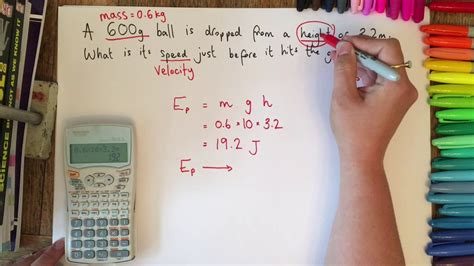 mass = 0.6kg
A 600g ball is dropped from a height of 3.2m.
What is its speed just before it hits the g
Velocity
Ep = m g h
= 0.6 * 10 * 3.2
= 19.2 J
Ep →